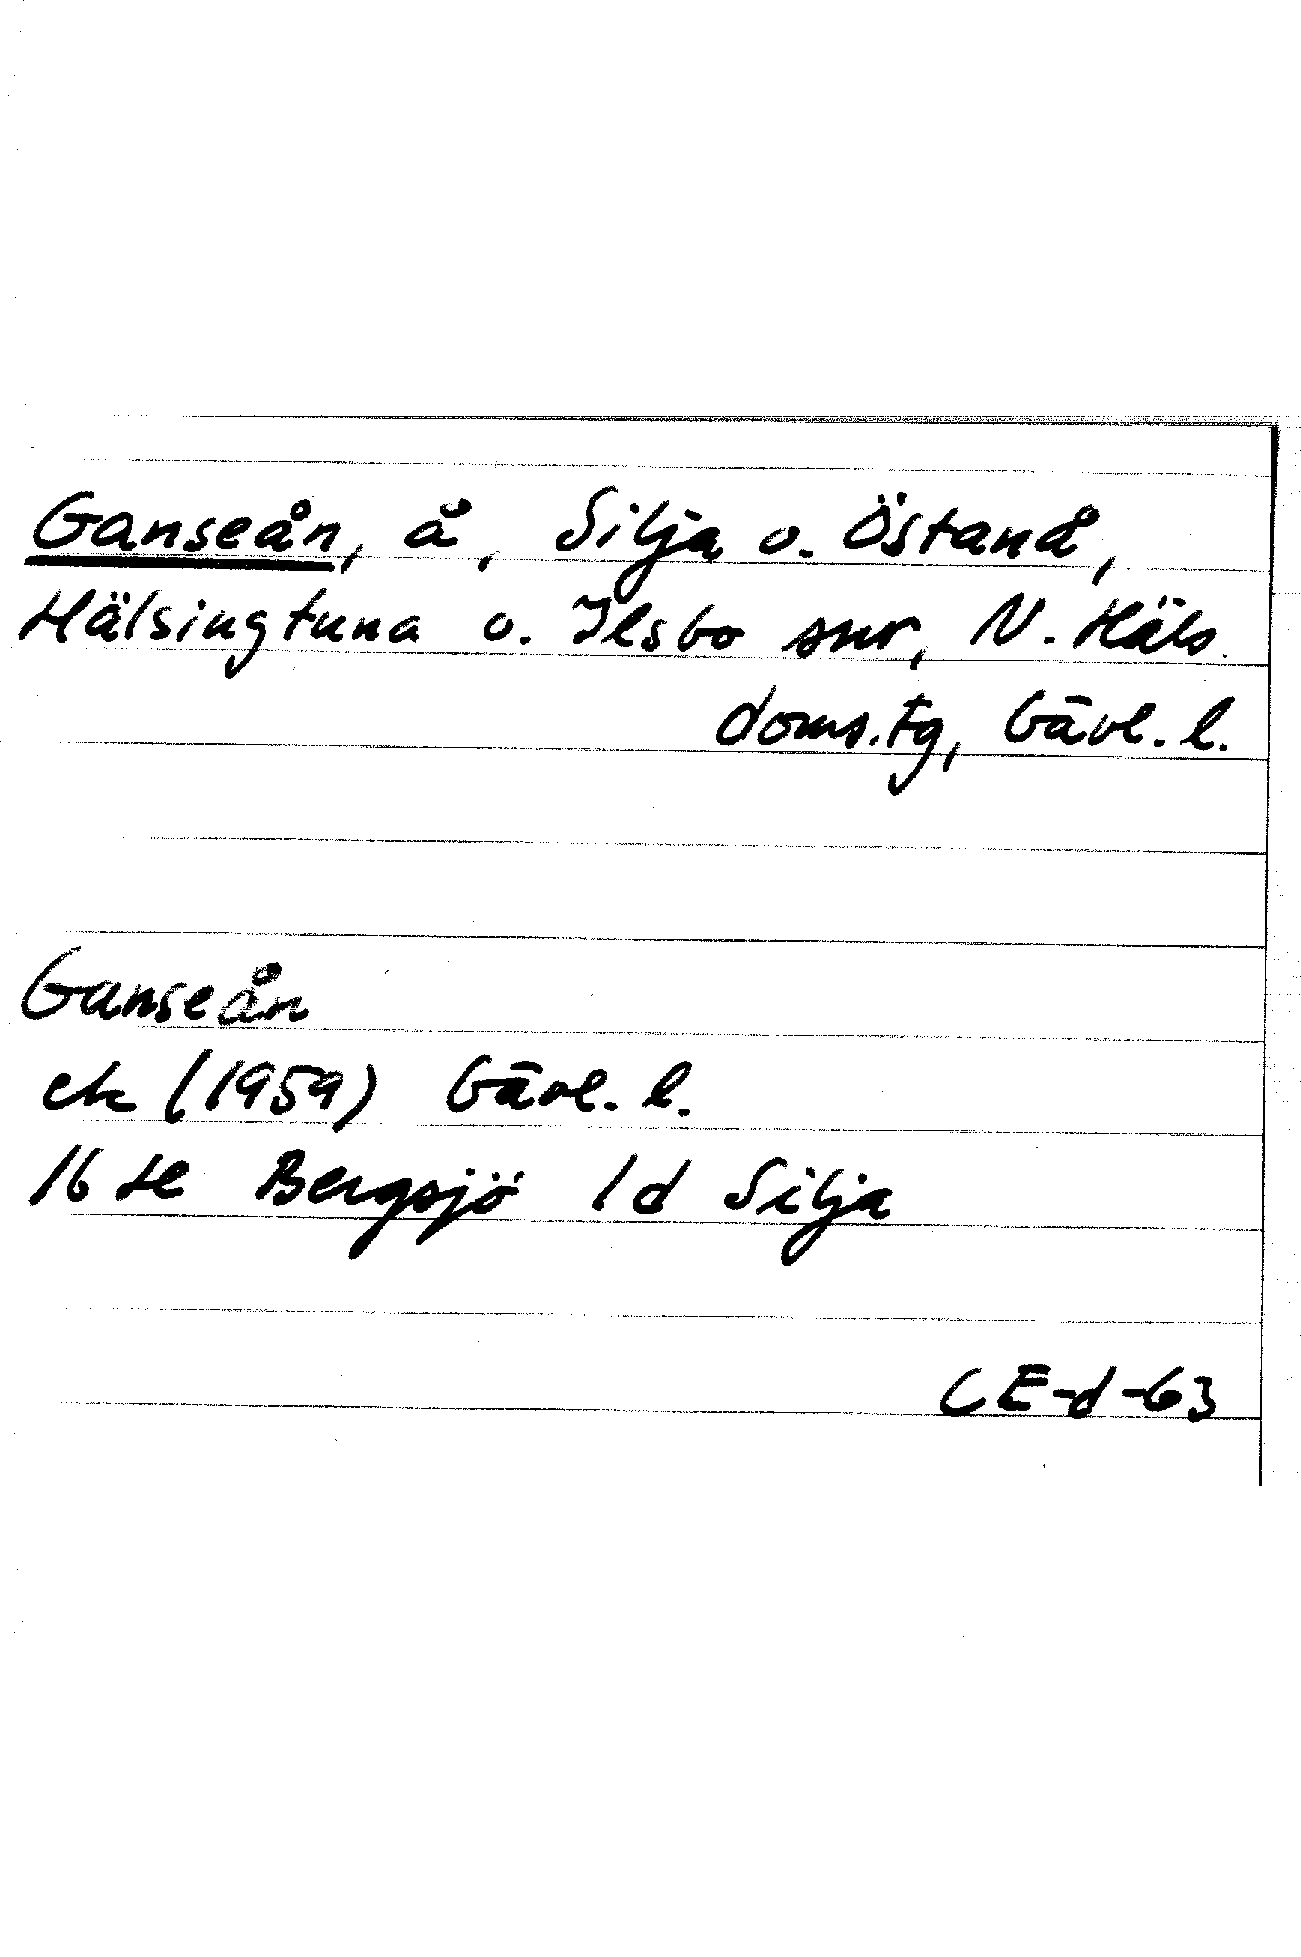 Ganseån, å, Silja o. Östanå,
Hälsingtuna o. Ilsbo snr, N. Häls.
doms.tg, Gävl. l.
Ganseån
ek (1959) Gävl. l.
16 He Bergsjö 1d Silja
CE-d-63